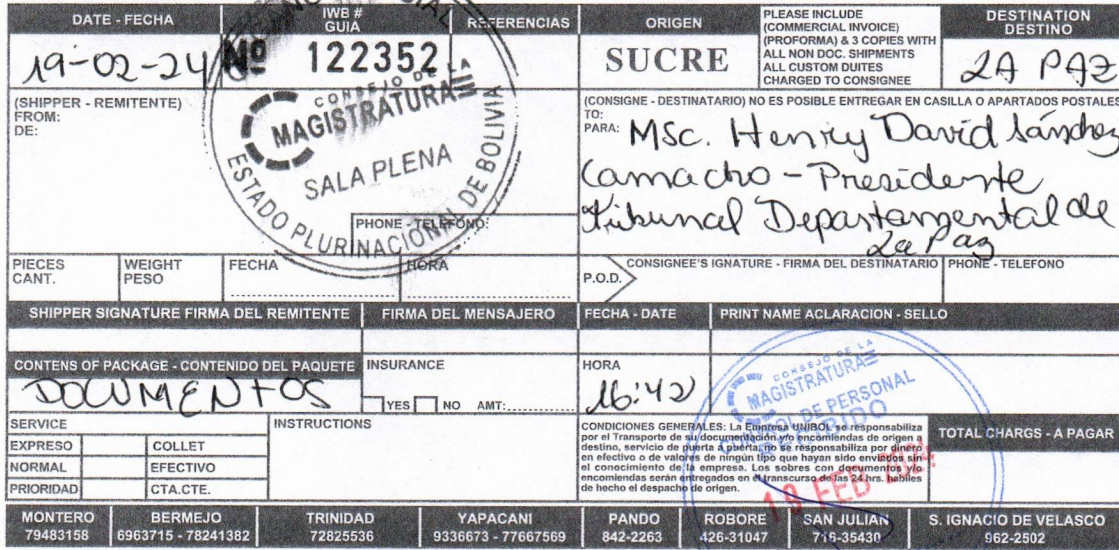 DATE - FECHA
IWB #
GUIA
REFERENCIAS
ORIGEN
PLEASE INCLUDE
(COMMERCIAL INVOICE)
(PROFORMA) & 3 COPIES WITH
ALL NON DOC. SHIPMENTS
ALL CUSTOM DUITES
CHARGED TO CONSIGNEE
DESTINATION
DESTINO
19-02-24
Nº 122352
SUCRE
LA PAZ
CONSEJO DE LA
MAGISTRATURA
SALA PLENA
ESTADO PLURINACIONAL DE BOLIVIA
(SHIPPER - REMITENTE)
FROM:
DE:
PHONE - TELEFONO:
(CONSIGNE - DESTINATARIO) NO ES POSIBLE ENTREGAR EN CASILLA O APARTADOS POSTALES
TO:
PARA: MSc. Henry David Sánchez
Camacho - Presidente
Tribunal Departamental de
La Paz
PIECES
CANT.
WEIGHT
PESO
FECHA
HORA
P.O.D.
CONSIGNEE'S IGNATURE - FIRMA DEL DESTINATARIO
PHONE - TELEFONO
SHIPPER SIGNATURE FIRMA DEL REMITENTE
FIRMA DEL MENSAJERO
FECHA - DATE
PRINT NAME ACLARACION - SELLO
CONTENS OF PACKAGE - CONTENIDO DEL PAQUETE
DOCUMENTOS
INSURANCE
YES NO AMT:
HORA
16:42
CONSEJO DE LA
MAGISTRATURA
CONTROL DE PERSONAL
RECIBIDO
19 FEB 2024
SERVICE
EXPRESO
COLLET
NORMAL
EFECTIVO
PRIORIDAD
CTA.CTE.
INSTRUCTIONS
CONDICIONES GENERALES: La Empresa UNIBOL se responsabiliza
por el Transporte de su documentación y/o encomiendas de origen a
destino, servicio de puerta a puerta, no se responsabiliza por dinero
en efectivo o de valores de ningún tipo que hayan sido enviados sin
el conocimiento de la empresa. Los sobres con documentos y/o
encomiendas serán entregados en el transcurso de las 24 hrs. habiles
de hecho el despacho de origen.
TOTAL CHARGS - A PAGAR
MONTERO
79483158
BERMEJO
6963715 - 78241382
TRINIDAD
72825536
YAPACANI
9336673 - 77667569
PANDO
842-2263
ROBORE
426-31047
SAN JULIAN
716-35430
S. IGNACIO DE VELASCO
962-2502